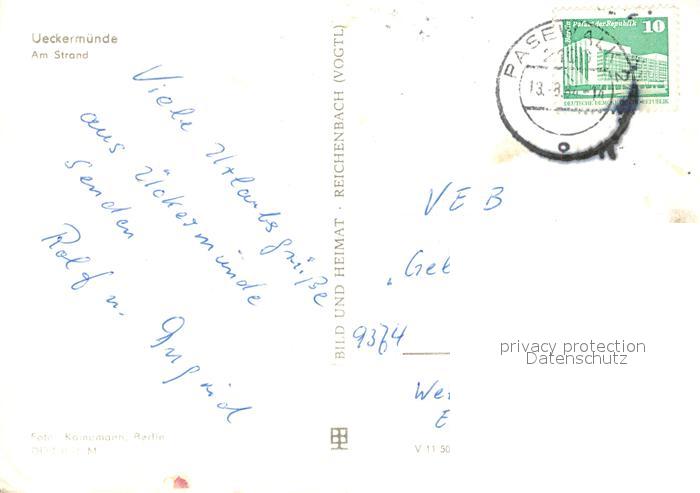 Ueckermünde
Am Strand
Viele Urlaubsgrüße
aus Ückermünde
senden
Rolf u. Ingrid
Foto: Kainumann, Berlin
BILD UND HEIMAT · REICHENBACH (VOGTL)
V 11 50
PASEWALK
13.-8.
Berlin Palast der Republik 10
DEUTSCHE DEMOKRATISCHE REPUBLIK
VEB
9374
privacy protection
Datenschutz